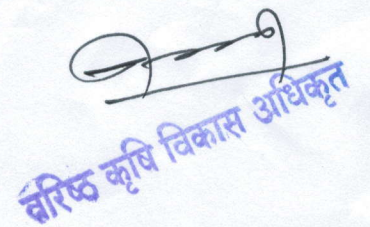 वरिष्ठ कृषि विकास अधिकृत